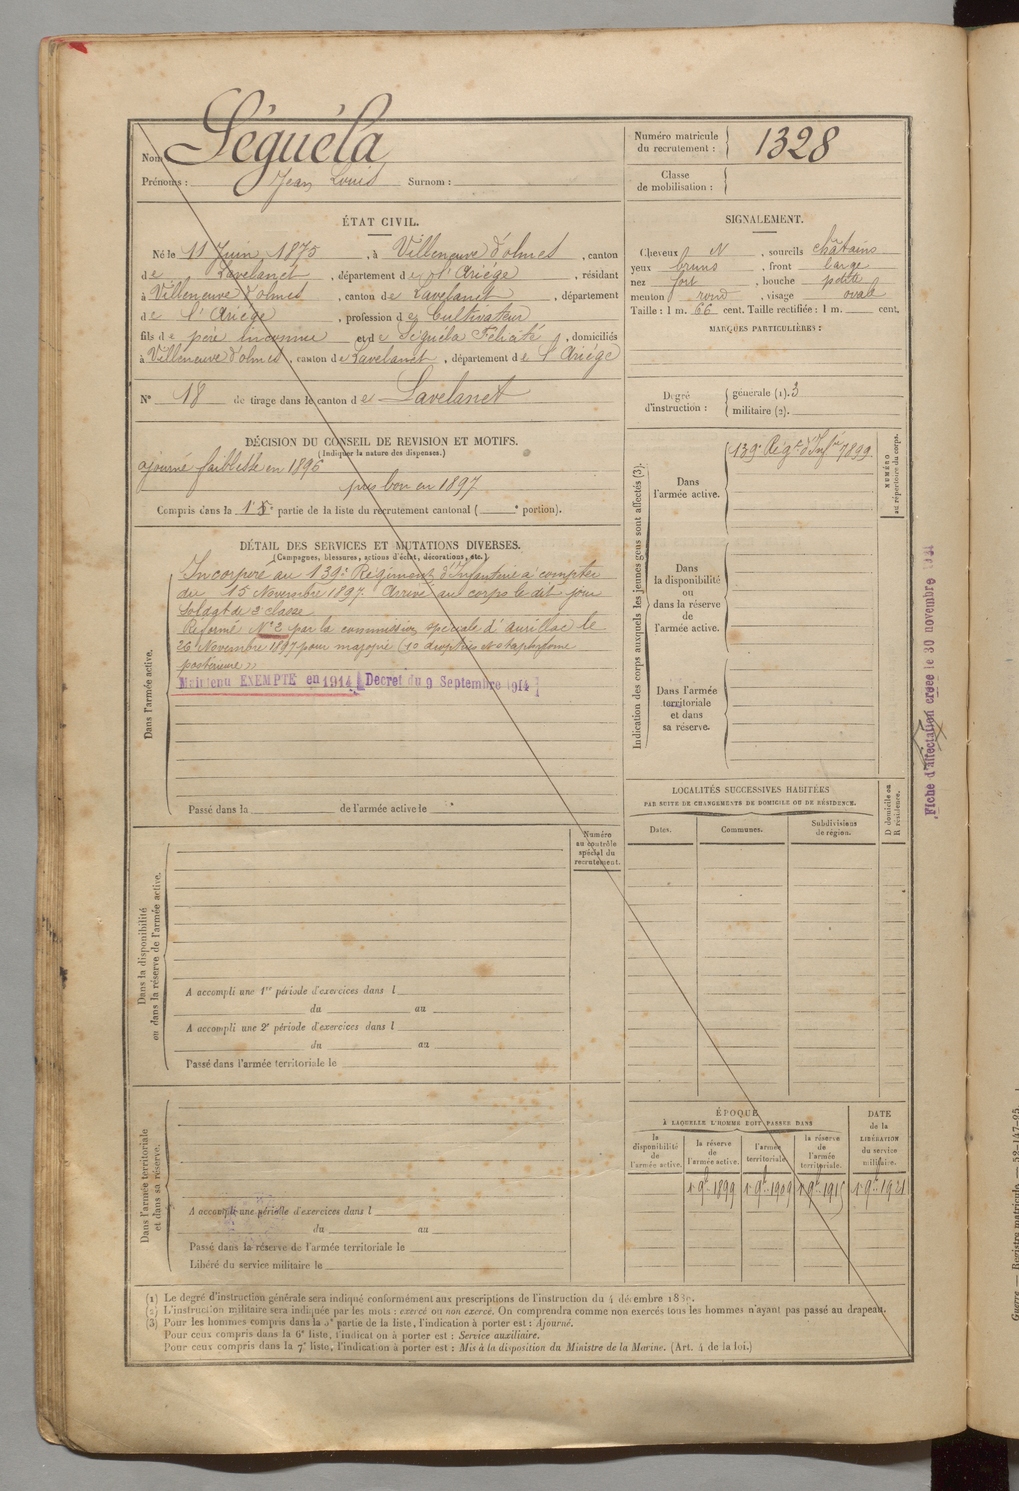 Nom Séguéla
Prénoms : Jean Louis Surnom :
Numéro matricule
du recrutement : 1328
Classe
de mobilisation :
ÉTAT CIVIL.
Né le 11 Juin 1875, à Villeneuve d'olmes, canton
de Lavelanet, département de l'Ariège, résidant
à Villeneuve d'olmes, canton de Lavelanet, département
de l'Ariège, profession de Cultivateur
fils de père inconnu et de Séguéla Félicité, domiciliés
à Villeneuve d'olmes, canton de Lavelanet, département de l'Ariège
N° 18 de tirage dans le canton de Lavelanet
SIGNALEMENT.
Cheveux N, sourcils châtains
yeux bruns, front large
nez fort, bouche petite
menton rond, visage ovale
Taille : 1 m. 66 cent. Taille rectifiée : 1 m. cent.
MARQUES PARTICULIÈRES :
Degré
d'instruction :
générale (1). 3
militaire (2).
DÉCISION DU CONSEIL DE REVISION ET MOTIFS.
(Indiquer la nature des dispenses.)
ajourné faiblesse en 1896
pris bon en 1897
Compris dans la 1e partie de la liste du recrutement cantonal ( e portion).
DÉTAIL DES SERVICES ET MUTATIONS DIVERSES.
(Campagnes, blessures, actions d'éclat, décorations, etc.)
Dans l'armée active.
Incorporé au 139e Régiment d'Infanterie à compter
du 15 Novembre 1897 Arrivé au corps le dit jour
Soldat de 2e classe
Réformé N° 2 par la commission spéciale d'Aurillac le
26 Novembre 1897 pour myopie (10 dioptries et staphylome
postérieur)
Maintenu EXEMPTÉ en 1914 Décret du 9 Septembre 1914
Passé dans la de l'armée active le
Indication des corps auxquels les jeunes gens sont affectés (3).
Dans
l'armée active.
139e Régt d'Infie 7899
NUMÉRO
au répertoire du corps.
Dans
la disponibilité
ou
dans la réserve
de
l'armée active.
Dans l'armée
territoriale
et dans
sa réserve.
Fiche d'affectation créée le 30 novembre 1931
LOCALITÉS SUCCESSIVES HABITÉES
PAR SUITE DE CHANGEMENTS DE DOMICILE OU DE RÉSIDENCE.
Dates.
Communes.
Subdivisions
de région.
D domicile ou
R résidence.
Numéro
au contrôle
spécial du
recrutement.
Dans la disponibilité
ou dans la réserve de l'armée active.
A accompli une 1re période d'exercices dans l
du au
A accompli une 2e période d'exercices dans l
du au
Passé dans l'armée territoriale le
Dans l'armée territoriale
et dans sa réserve.
A accompli une période d'exercices dans l
du au
Passé dans la réserve de l'armée territoriale le
Libéré du service militaire le
ÉPOQUE
À LAQUELLE L'HOMME DOIT PASSER DANS
la
disponibilité
de
l'armée active.
la réserve
de
l'armée active.
l'armée
territoriale.
la réserve
de
l'armée
territoriale.
DATE
de la
LIBÉRATION
du service
militaire.
1er 9bre 1899
1er 9bre 1909
1er 9bre 1915
1er 9bre 1921
(1) Le degré d'instruction générale sera indiqué conformément aux prescriptions de l'instruction du 4 décembre 1889.
(2) L'instruction militaire sera indiquée par les mots : exercé ou non exercé. On comprendra comme non exercés tous les hommes n'ayant pas passé au drapeau.
(3) Pour les hommes compris dans la 5e partie de la liste, l'indication à porter est : Ajourné.
Pour ceux compris dans la 6e liste, l'indication à porter est : Service auxiliaire.
Pour ceux compris dans la 7e liste, l'indication à porter est : Mis à la disposition du Ministre de la Marine. (Art. 4 de la loi.)
Guerre. — Registre matricule. — 52-147-95.